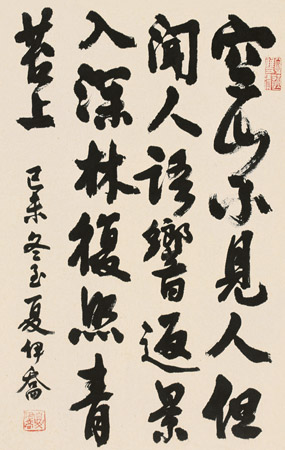 空山不見人但
聞人語響返景
入深林復照青
苔上
己未冬至夏伊喬